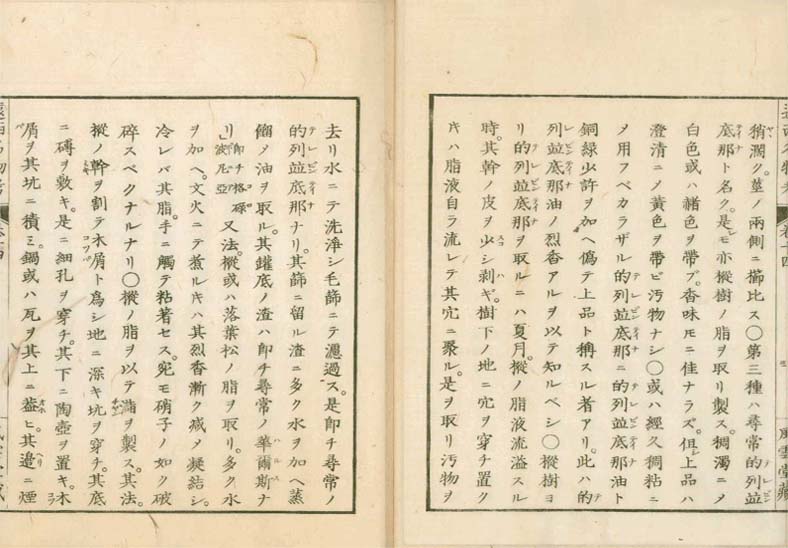 稍濶ク。莖ノ兩側ニ櫛比ス〇第三種ハ尋常的列並
底那ト名ク。是レモ亦樅樹ノ脂ヲ取リ製ス。稠濁ニメ
白色或ハ赭色ヲ帶ブ。香味モニ佳ナラズ。但シ上品ハ
澄清ニメ黄色ヲ帶ビ汚物ナシ〇或ハ經久稠粘ニ
メ用フベカラザル的列並底那ニ的列並底那油ト
銅緑少許ヲ加ヘ偽テ上品ト稱スル者アリ。此ハ的
列並底那油ノ烈香アルヲ以テ知ルベシ〇樅樹ヨ
リ的列並底那ヲ取ルニハ夏月。樅ノ脂液流溢スル
時。其幹ノ皮ヲ少シ剥ギ。樹下ノ地ニ穴ヲ穿チ置ク
キハ脂液自ラ流レテ其穴ニ聚ル。是ヲ取リ汚物ヲ
卷十四
風雲堂藏
去リ水ニテ洗淨シ毛篩ニテ濾過ス。是卽チ尋常ノ
的列並底那ナリ。其篩ニ留ル渣ニ多ク水ヲ加ヘ蒸
餾メ油ヲ取ル。其鑵底ノ渣ハ卽チ尋常ノ華爾斯ナ
リ卽チ格碌波尼亞又法。樅或ハ落葉松ノ脂ヲ取リ。多ク水
ヲ加ヘ。文火ニテ煮ルキハ其烈香漸ク減メ凝結シ。
冷レバ其脂。手ニ觸テ粘著セス。宛モ硝子ノ如ク破
碎スベクナルナリ〇樅ノ脂ヲ以テ瀝ヲ製ス。其法。
樅ノ幹ヲ割テ木屑ト爲シ地ニ深キ坑ヲ穿チ。其底
ニ磚ヲ敷キ。是ニ細孔ヲ穿チ。其下ニ陶壺ヲ置キ。木
屑ヲ其坑ニ積ミ。鍋或ハ瓦ヲ其上ニ蓋ヒ。其邉ニ煙